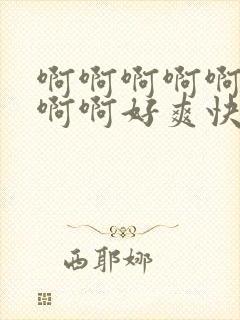 啊啊啊啊啊
啊啊好爽快
西耶娜